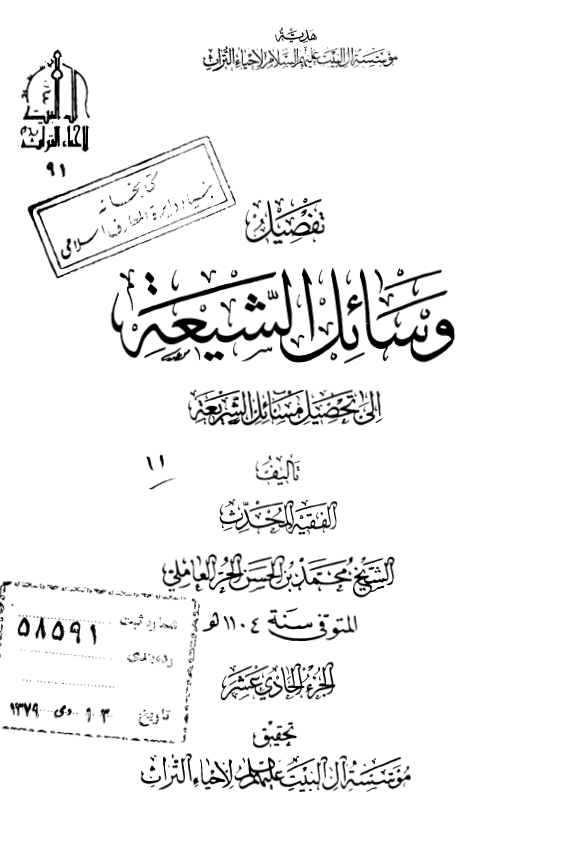 هدية
مؤسسة آل البيت عليهم السلام لإحياء التراث
آل البيت
لإحياء التراث
٩١
كتابخانه
بنياد دايرة المعارف اسلامى
تفصيل
وسائل الشيعة
إلى تحصيل مسائل الشريعة
١١
تأليف
الفقيه المحدث
الشيخ محمد بن الحسن الحر العاملي
المتوفى سنة ١١٠٤ هـ
الجزء الحادي عشر
تحقيق
مؤسسة آل البيت عليهم السلام لإحياء التراث
شماره ثبت ۵۸۵۹۱
رده‌بندى
تاريخ ۳۰ دى ۱۳۷۹